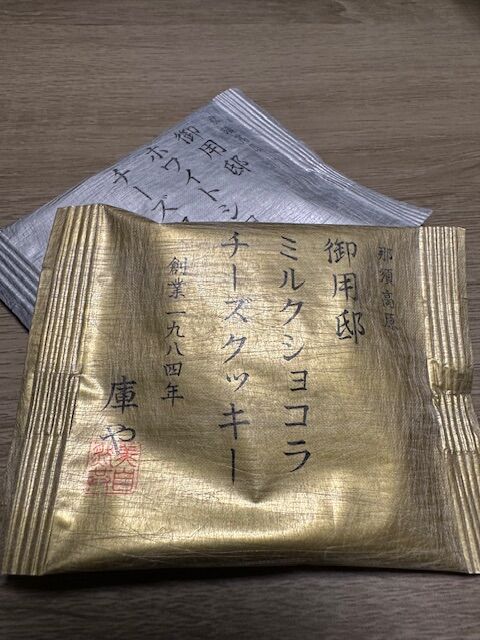 那須高原
御用邸
ミルクショコラ
チーズクッキー
創業一九八四年
庫や
御用邸
ホワイトショ
チーズ